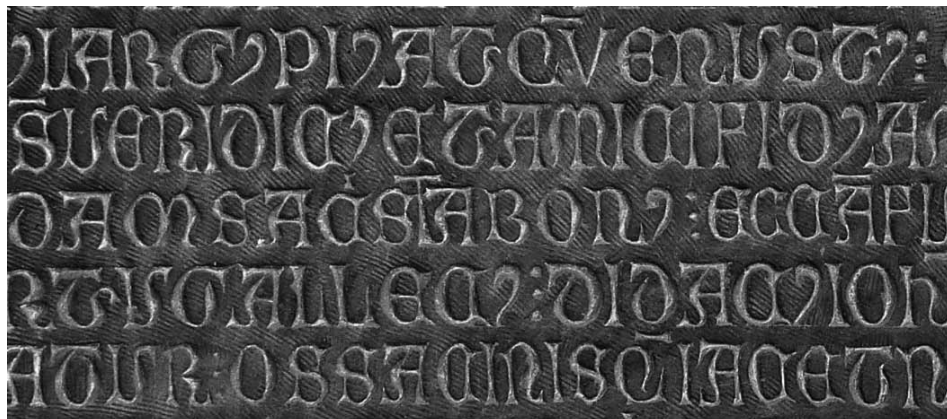 ꝰ LARGꝰ PIꝰ ATC V̄ENUSTꝰ :
S̄ VERIDICꝰ ET AMICI FIDꝰ A
DAM SAC̓STA BONꝰ : ECCĀ FU
RTIS GALLECꝰ : DIDACꝰ IOH
ATUR : OSSA CINISQ̄ IACET N